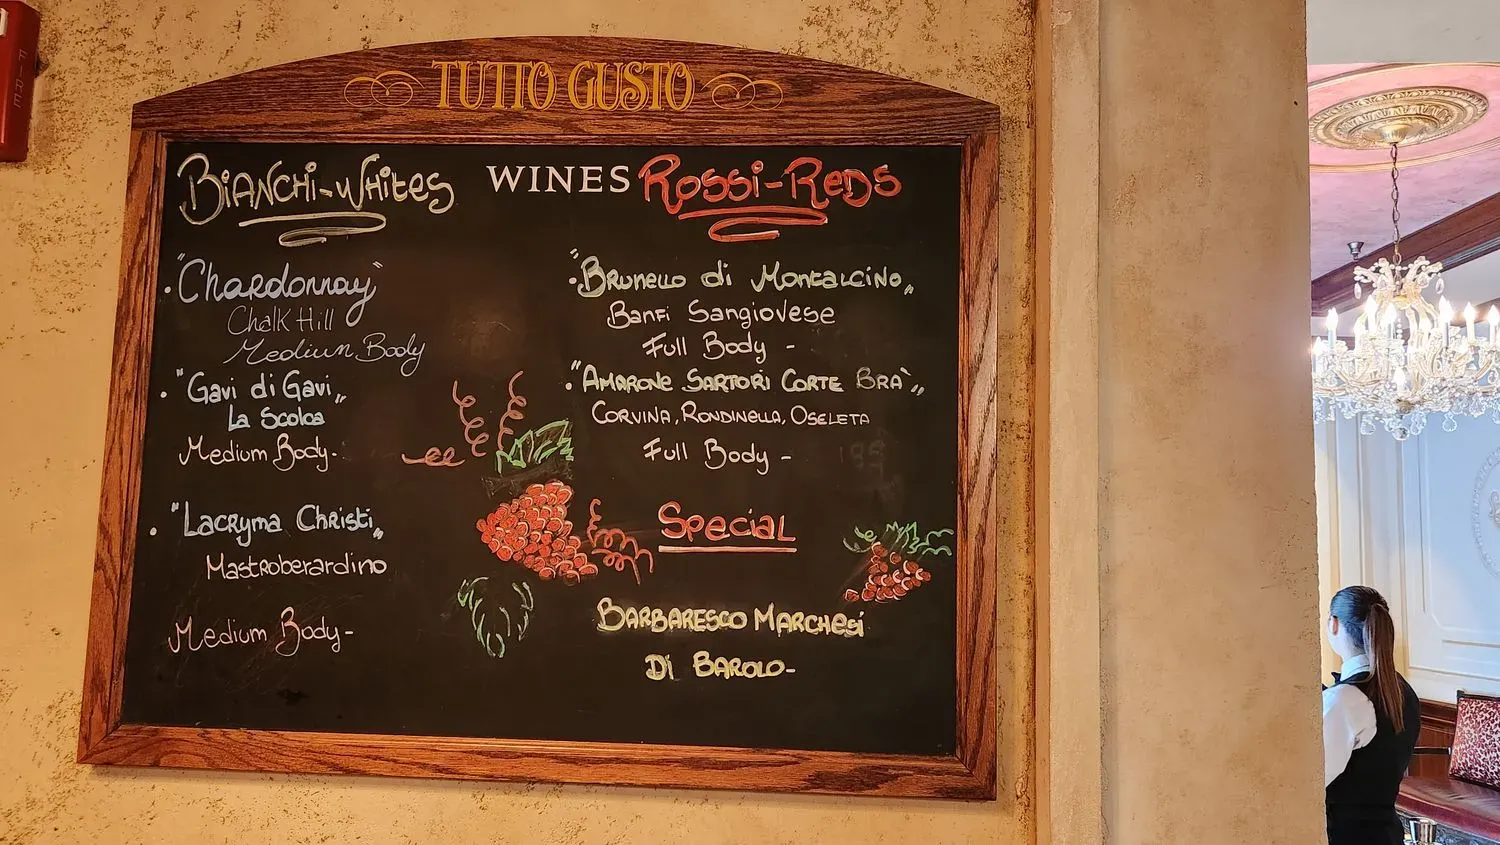 FIRE
TUTTO GUSTO
WINES
BiANCHi-WHitES
"Chardonnay"
Chalk Hill
Medium Body
"Gavi di Gavi"
La Scolca
Medium Body-
"Lacryma Christi"
Mastroberardino
Medium Body-
Rossi-Reds
"Brunello di Montalcino"
Banfi Sangiovese
Full Body -
"AMARONE SARTORI CORTE BRA`"
CORVINA, RONDINELLA, OSELETA
Full Body -
Special
BARBARESCO MARCHESi
Di BAROLO-